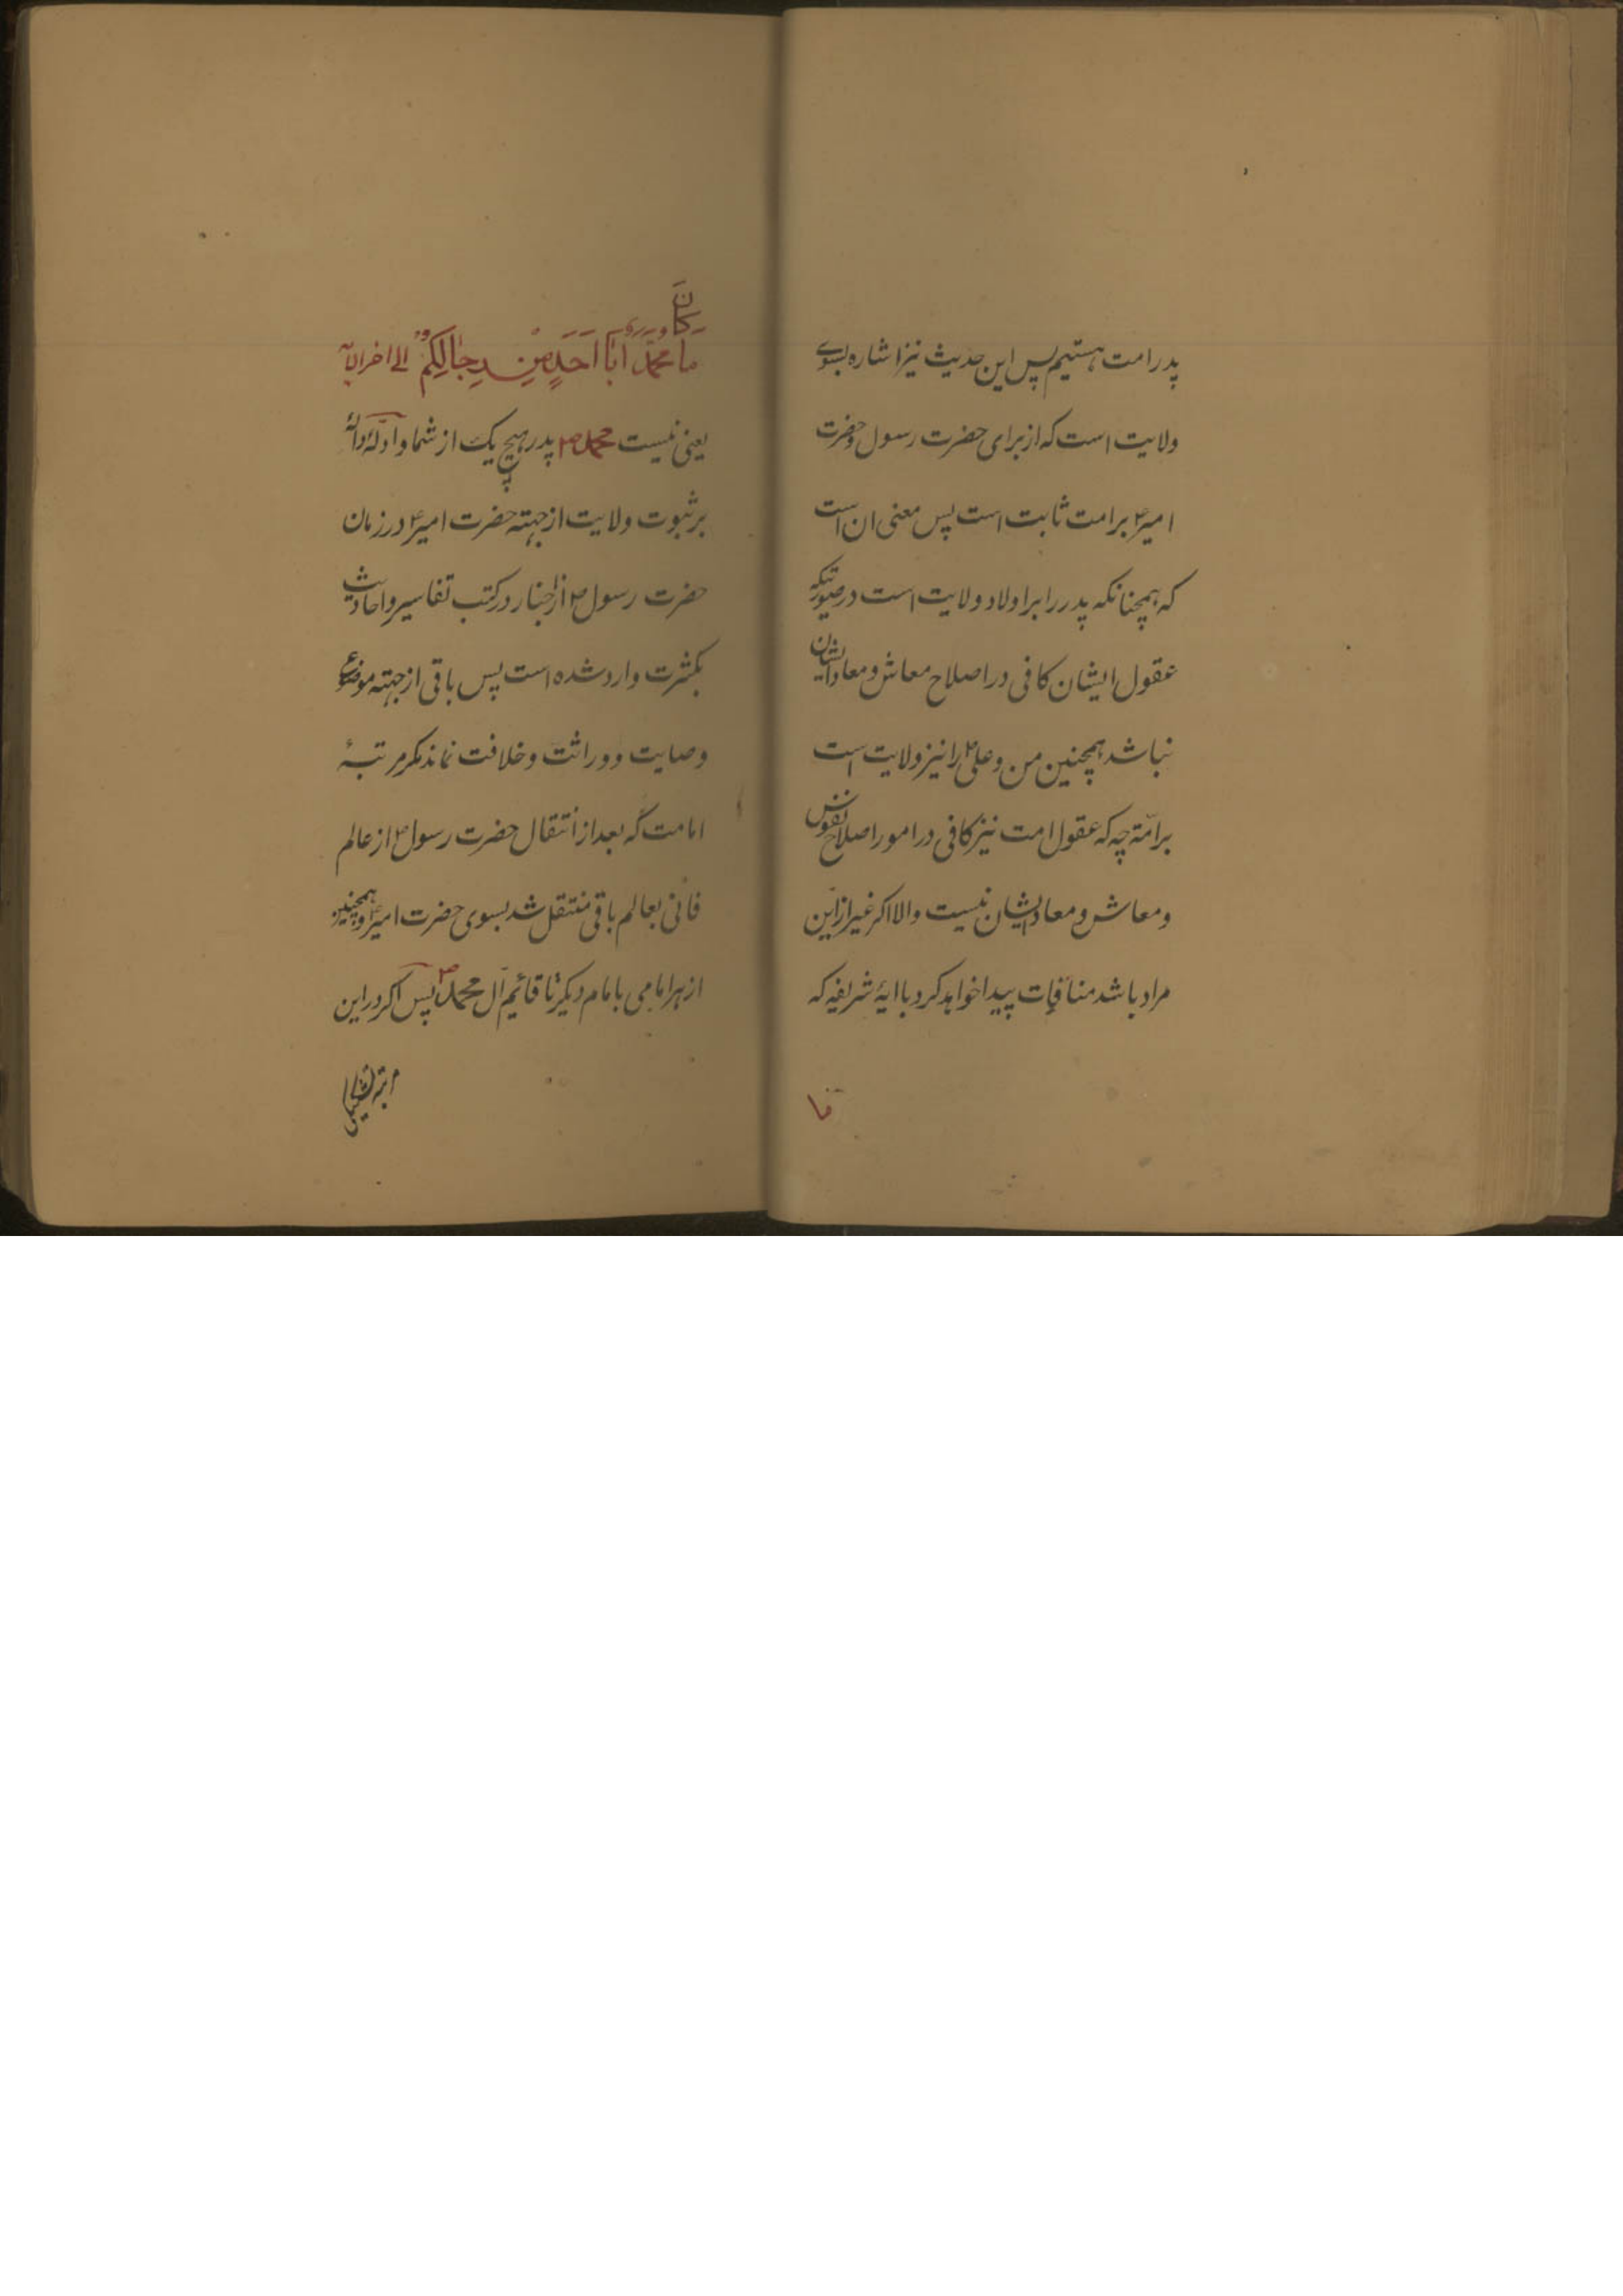 پدر امت هستیم پس این حدیث نیز اشاره بسوی
ولایت است که از برای حضرت رسول و حضرت
امیر۴ بر امت ثابت است پس معنی ان است
که همچنانکه پدر را بر اولاد ولایت است در صورتیکه
عقول ایشان کافی در اصلاح معاش و معاد ایشان
نباشد همچنین من و علی۴ را نیز ولایت است
بر امّة چه که عقول امت نیز کافی در امور اصلاح نفوس
و معاش و معاد ایشان نیست والا اکر غیر از این
مراد باشد منافات پیدا خواهد کرد با ایهٔ شریفه که
ما
مَا كَانَ مُحَمَّدٌ أَبَا أَحَدٍ مِنْ رِجَالِكُمْ الی اخر الآیه
یعنی نیست محمد ص پدر هیچ یک از شما و ادلّهٔ دالّهٔ
بر ثبوت ولایت از جهته حضرت امیر۴ در زمان
حضرت رسول ص از اخبار در کتب تفاسیر و احادیث
بکثرت وارد شده است پس باقی از جهته موضوع
وصایت و وراثت و خلافت نماند مکر مرتبهٔ
امامت که بعد از انتقال حضرت رسول ص از عالم
فانی بعالم باقی منتقل شد بسوی حضرت امیر۴ و همچنین
از هر امامی بامام دیکر تا قائم آل محمد ص پس اکر در این